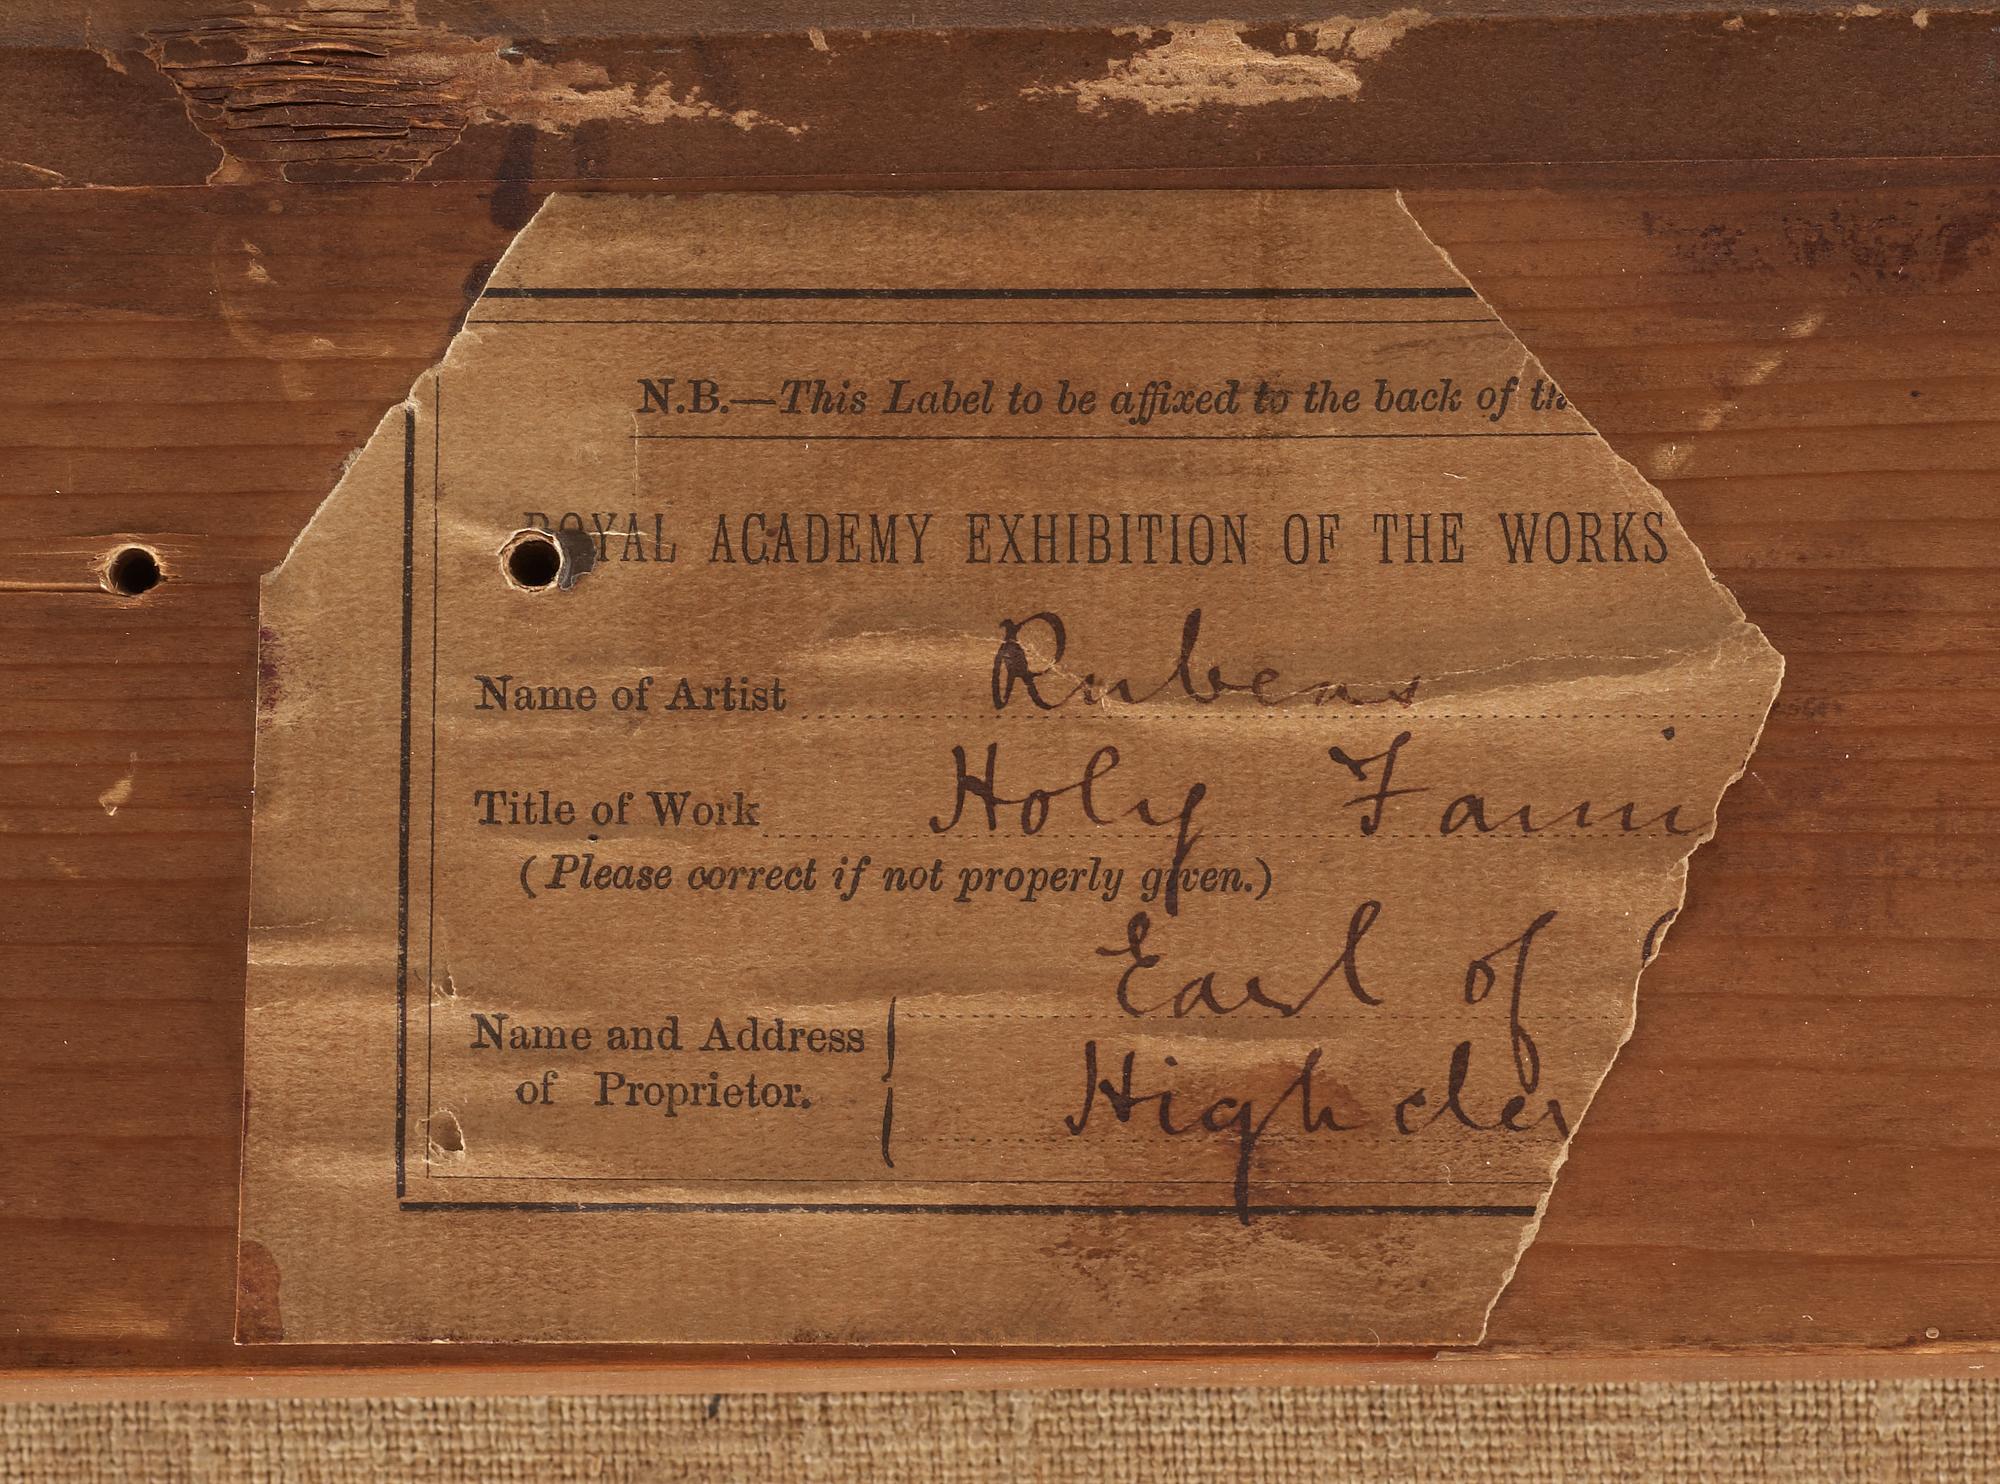 N.B.—This Label to be affixed to the back of th
ROYAL ACADEMY EXHIBITION OF THE WORKS
Name of Artist Rubens
Title of Work Holy Fami
(Please correct if not properly given.)
Earl of
Name and Address
of Proprietor.
Highcler